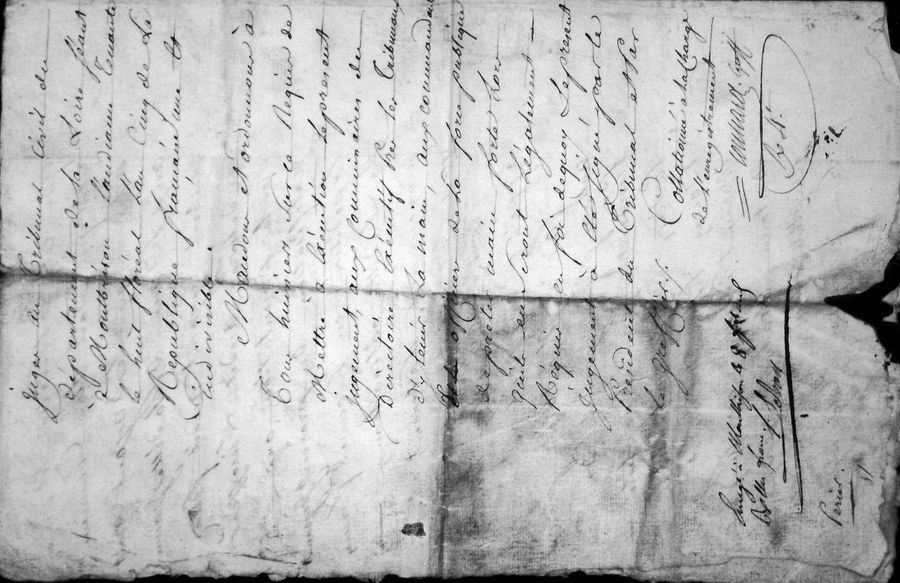 Jugé au Tribunal Civil du
département de la Loire séant
à Montbrison l'audience tenante
le huit floréal l'an cinq de la
République française une et
Indivisible.
Mandons et ordonnons à
tous huissiers sur ce Requis de
Mettre à exécution le présent
Jugement, aux Commissaires du
Directoire Exécutif près les Tribunaux
d'y tenir la main, aux commandans
et officiers de la force publique
de preter main forte lors
qu'ils en seront Légalement
Requis en foi de quoy le present
Jugement à été signé par le
Président du Tribunal et par
le greffier.
Collationné à la charge
de l'enregistrement
à Montbrison le 28
Perrier.